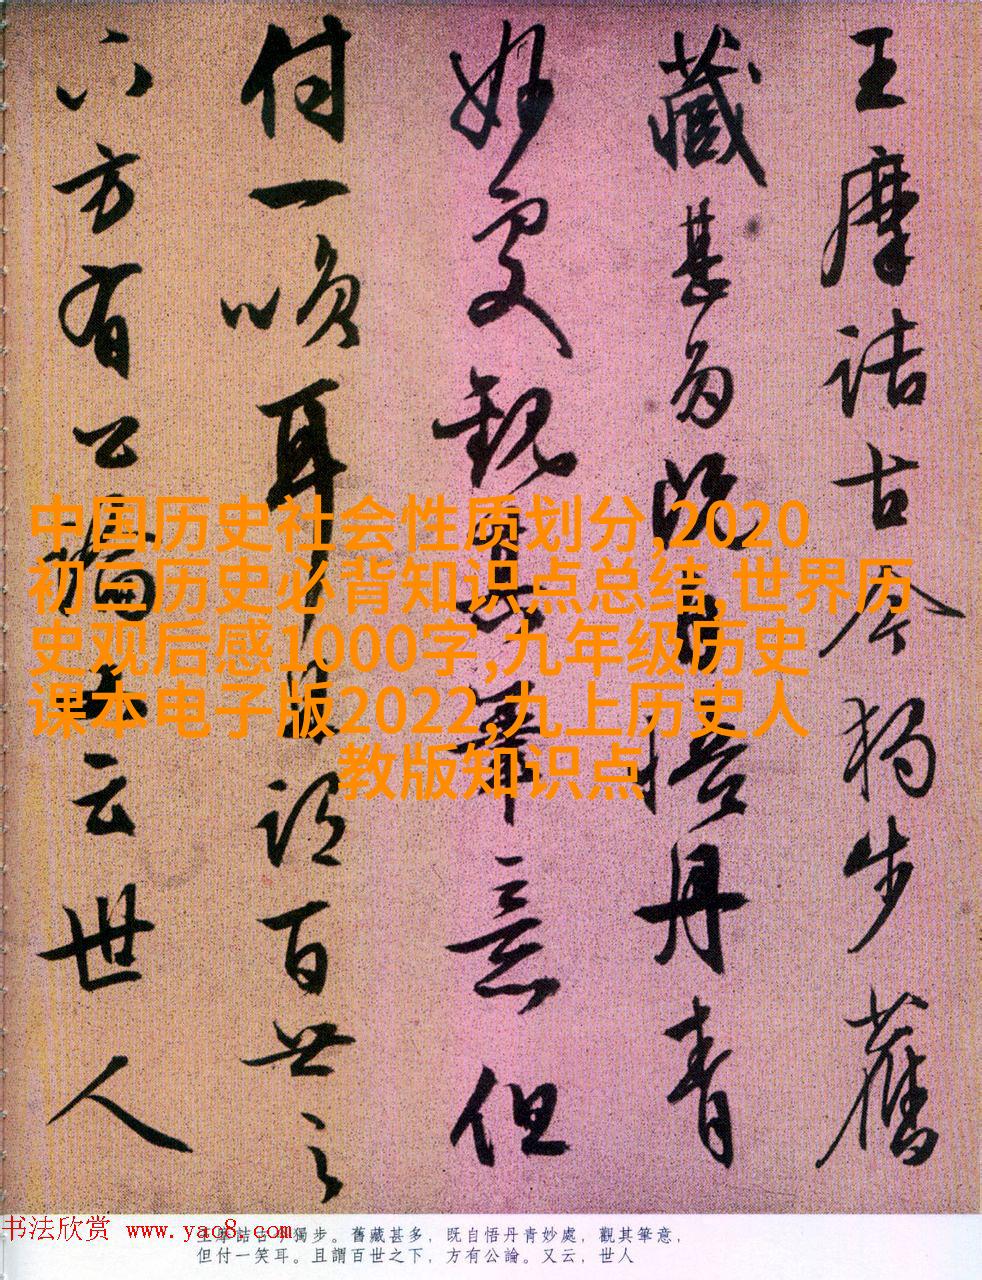 王摩詰古今獨步舊
藏甚多既自悟丹青
妙處觀其筆意但
付一笑耳且謂百世之
下方有公論又云世人
中国历史社会性质划分,2020
初二历史必背知识点总结,世界历
史观后感1000字,九年级历史
课本电子版2022,九上历史人
教版知识点
书法欣赏 www.yac8.com
王摩詰古今獨步。舊藏甚多，既自悟丹青妙處，觀其筆意，
但付一笑耳。且謂百世之下，方有公論。又云，世人